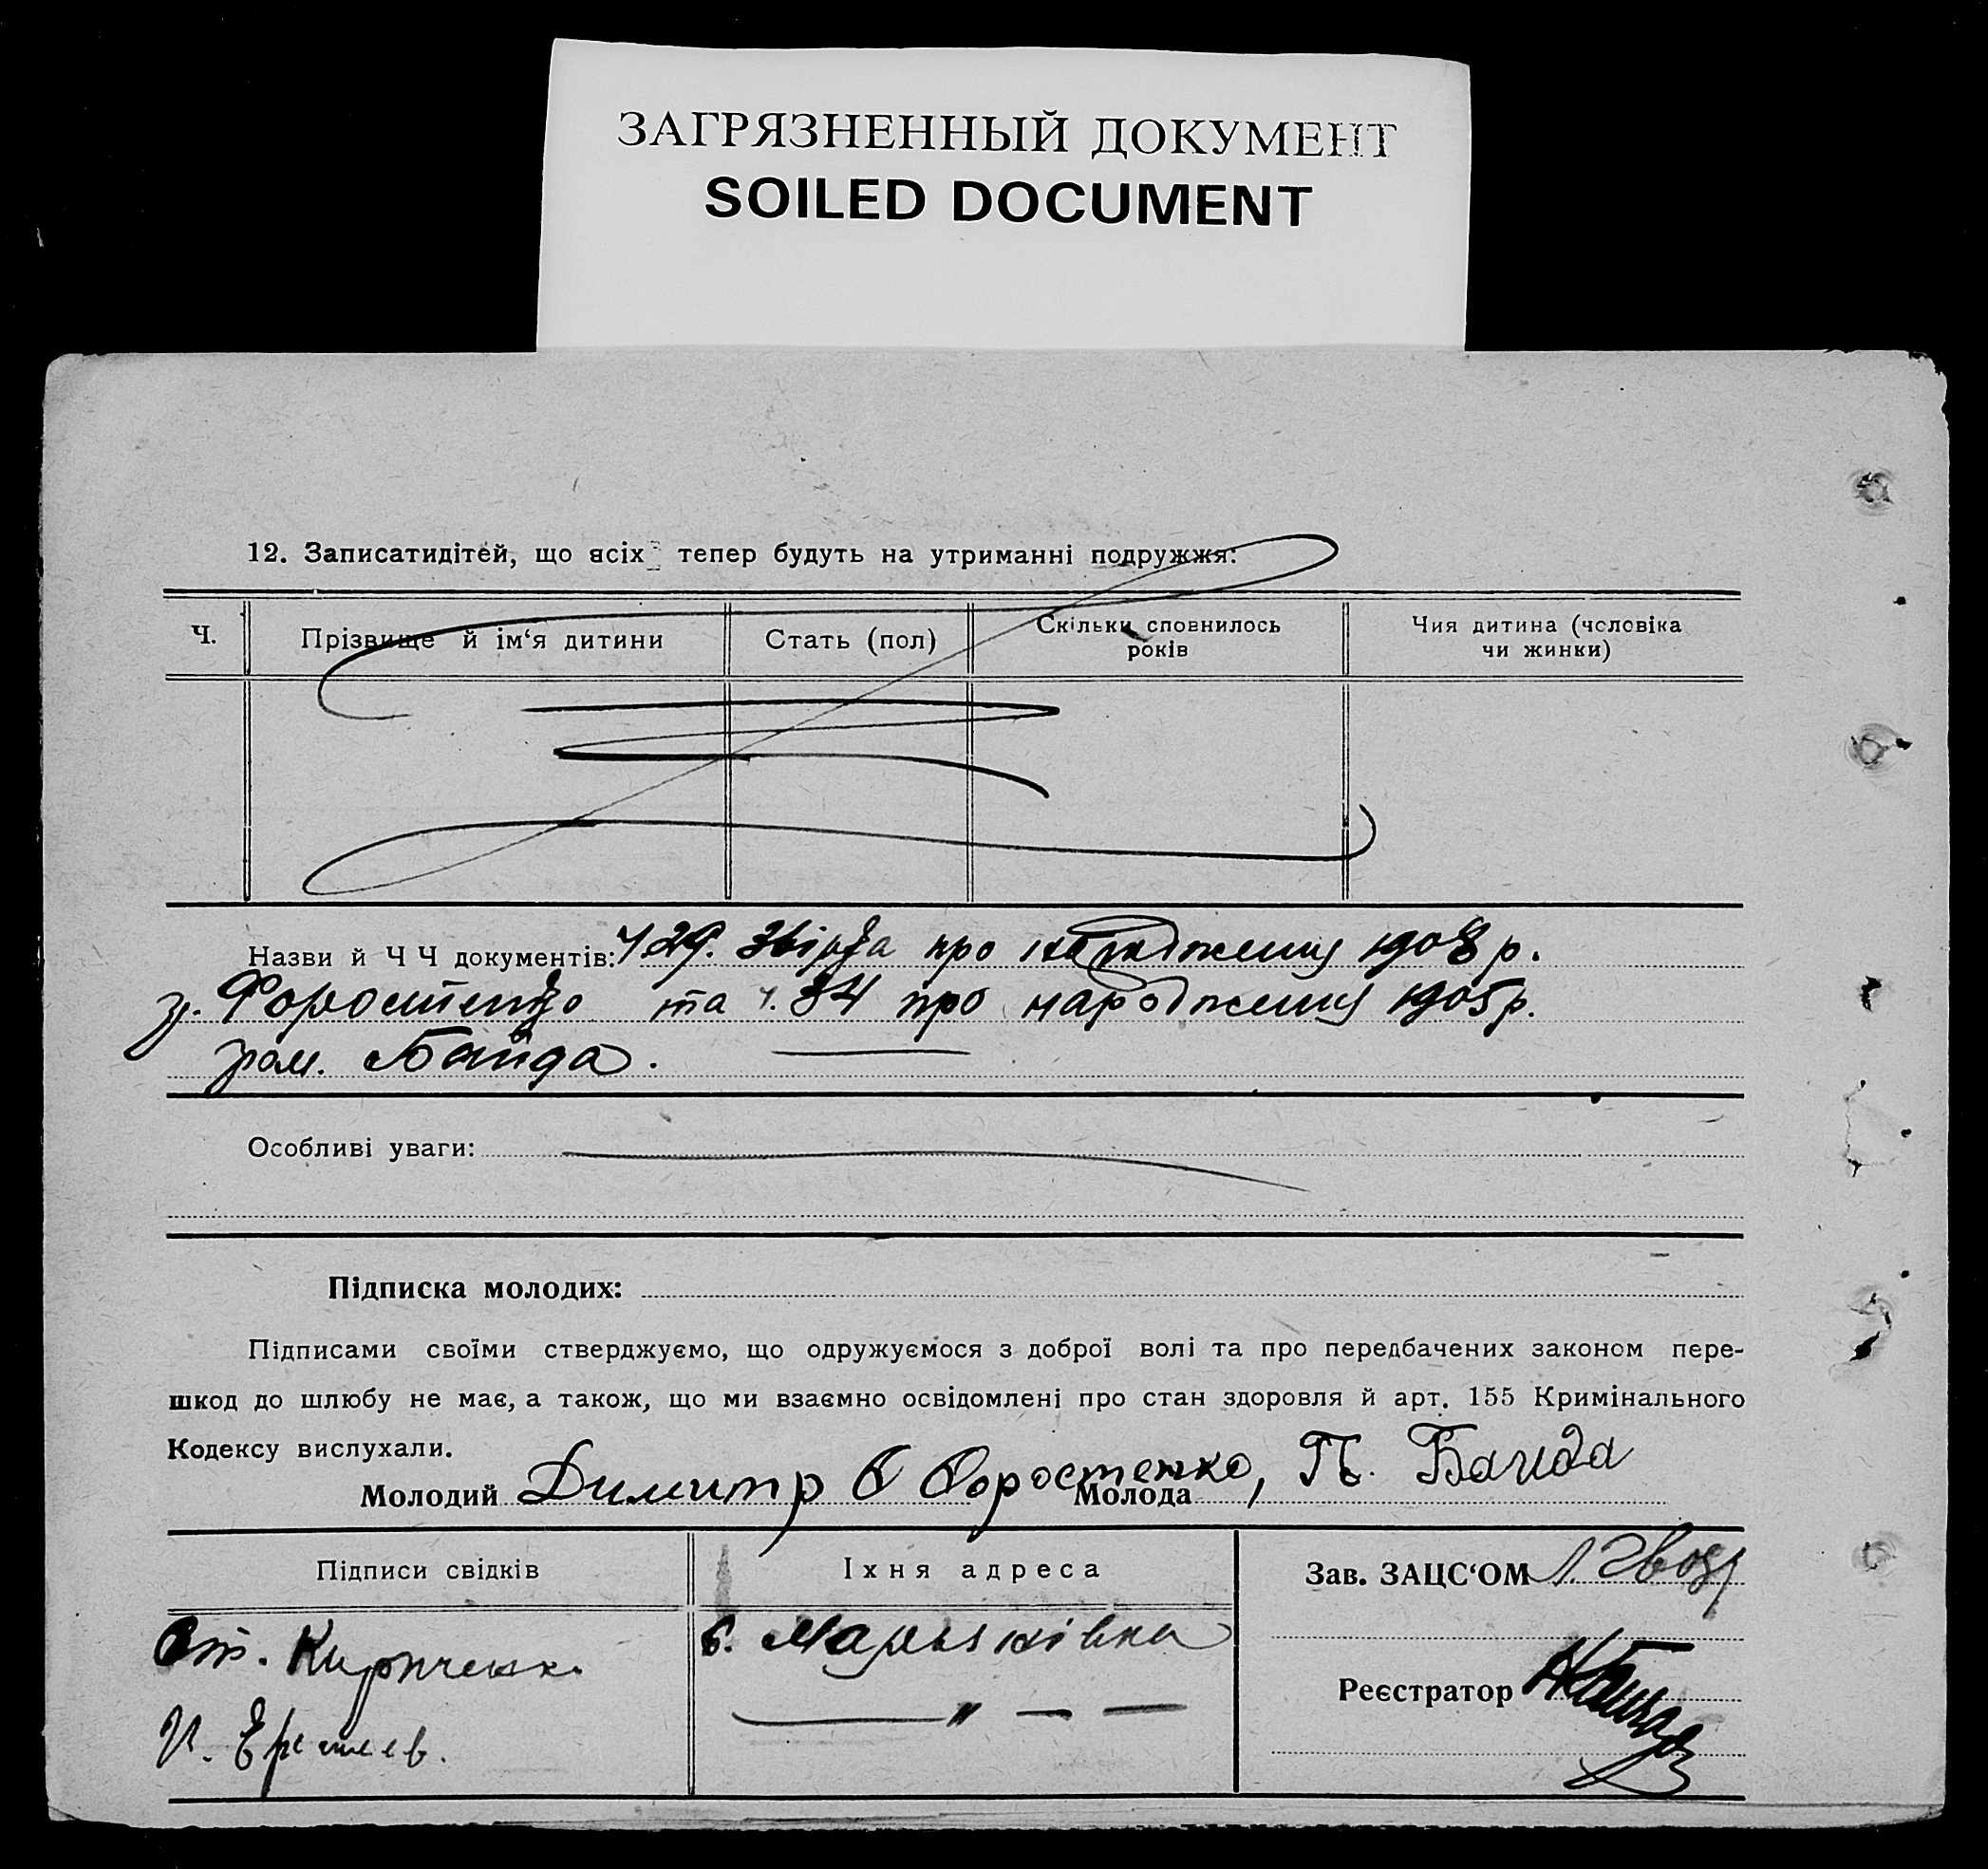 ЗАГРЯЗНЕННЫЙ ДОКУМЕНТ
SOILED DOCUMENT
12. Записатидітей, що всіх тепер будуть на утриманні подружжя:
Ч.
Прізвище й ім‘я дитини
Стать (пол)
Скільки сповнилось
років
Чия дитина (чоловіка
чи жинки)
Назви й Ч Ч документів: ч 29. про народження 1908 р.
гр. Форостенко та ч. 34 про народження 1905 р.
гром. Байда.
Особливі уваги:
Підписка молодих:
Підписами своїми стверджуємо, що одружуємося з доброї волі та про передбачених законом пере-
шкод до шлюбу не має, а також, що ми взаємно освідомлені про стан здоровля й арт. 155 Кримінального
Кодексу вислухали.
Молодий Димитр Форостенко, Молода П. Байда
Підписи свідків
Іхня адреса
Зав. ЗАЦС‘ОМ
Ст. Кирпченко
с. Мар'янівка
— „ — —
Реєстратор